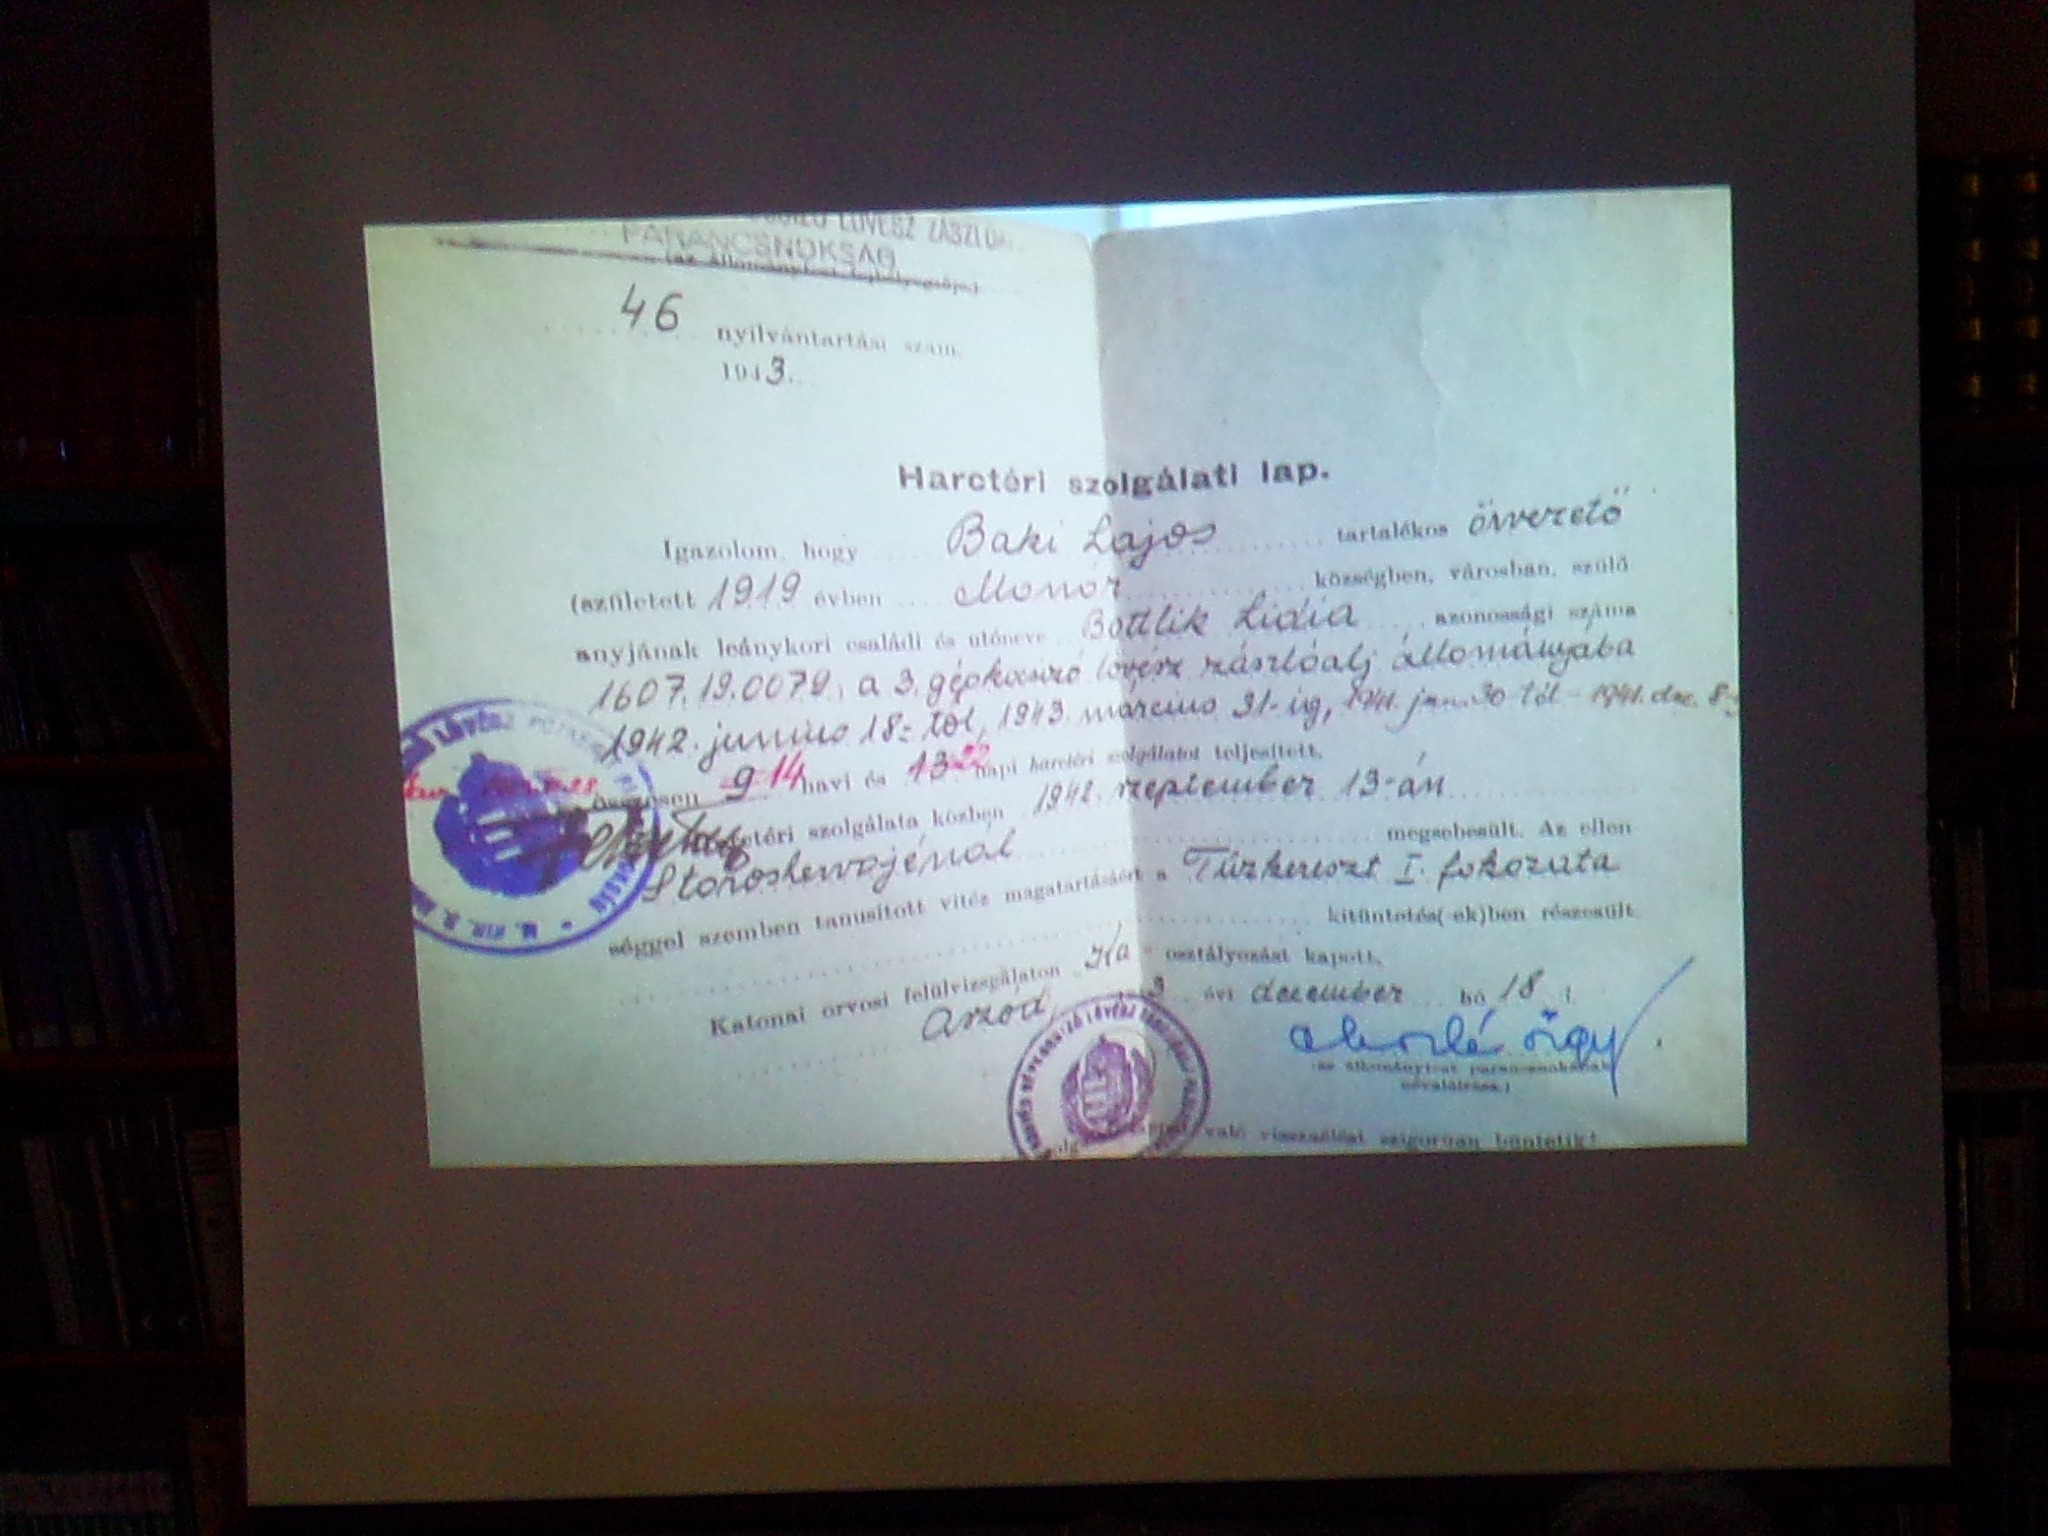 LÖVÉSZ ZÁSZLÓ
PARANCSNOKSÁG
(az állománytest fejbélyegzője.)
46 nyilvántartási szám.
1943.
Harctéri szolgálati lap.
Igazolom, hogy Baki Lajos tartalékos őrvezető
(született 1919 évben Monor községben, városban, szülő
anyjának leánykori családi és utóneve Bottlik Lidia azonossági száma
1607.19.0079., a 3. gépkocsizó lövész zászlóalj állományába
1942. junius 18-tól, 1943. március 31-ig, 1941. jun. 30 tól - 1941. dec. 8-
összesen 9 14 havi és 13 napi harctéri szolgálatot teljesített.
harctéri szolgálata közben 1942. szeptember 13-án
Storoshevojénál megsebesült. Az ellen
séggel szemben tanusított vitéz magatartásáért a Tűzkereszt I. fokozata
kitüntetés(-ek)ben részesült.
Katonai orvosi felülvizsgálaton osztályozást kapott.
Aszód, 3 évi december hó 18
őrgy.
(az állománytest parancsnokának
névaláírása.)
való visszaélést szigorúan büntetik!